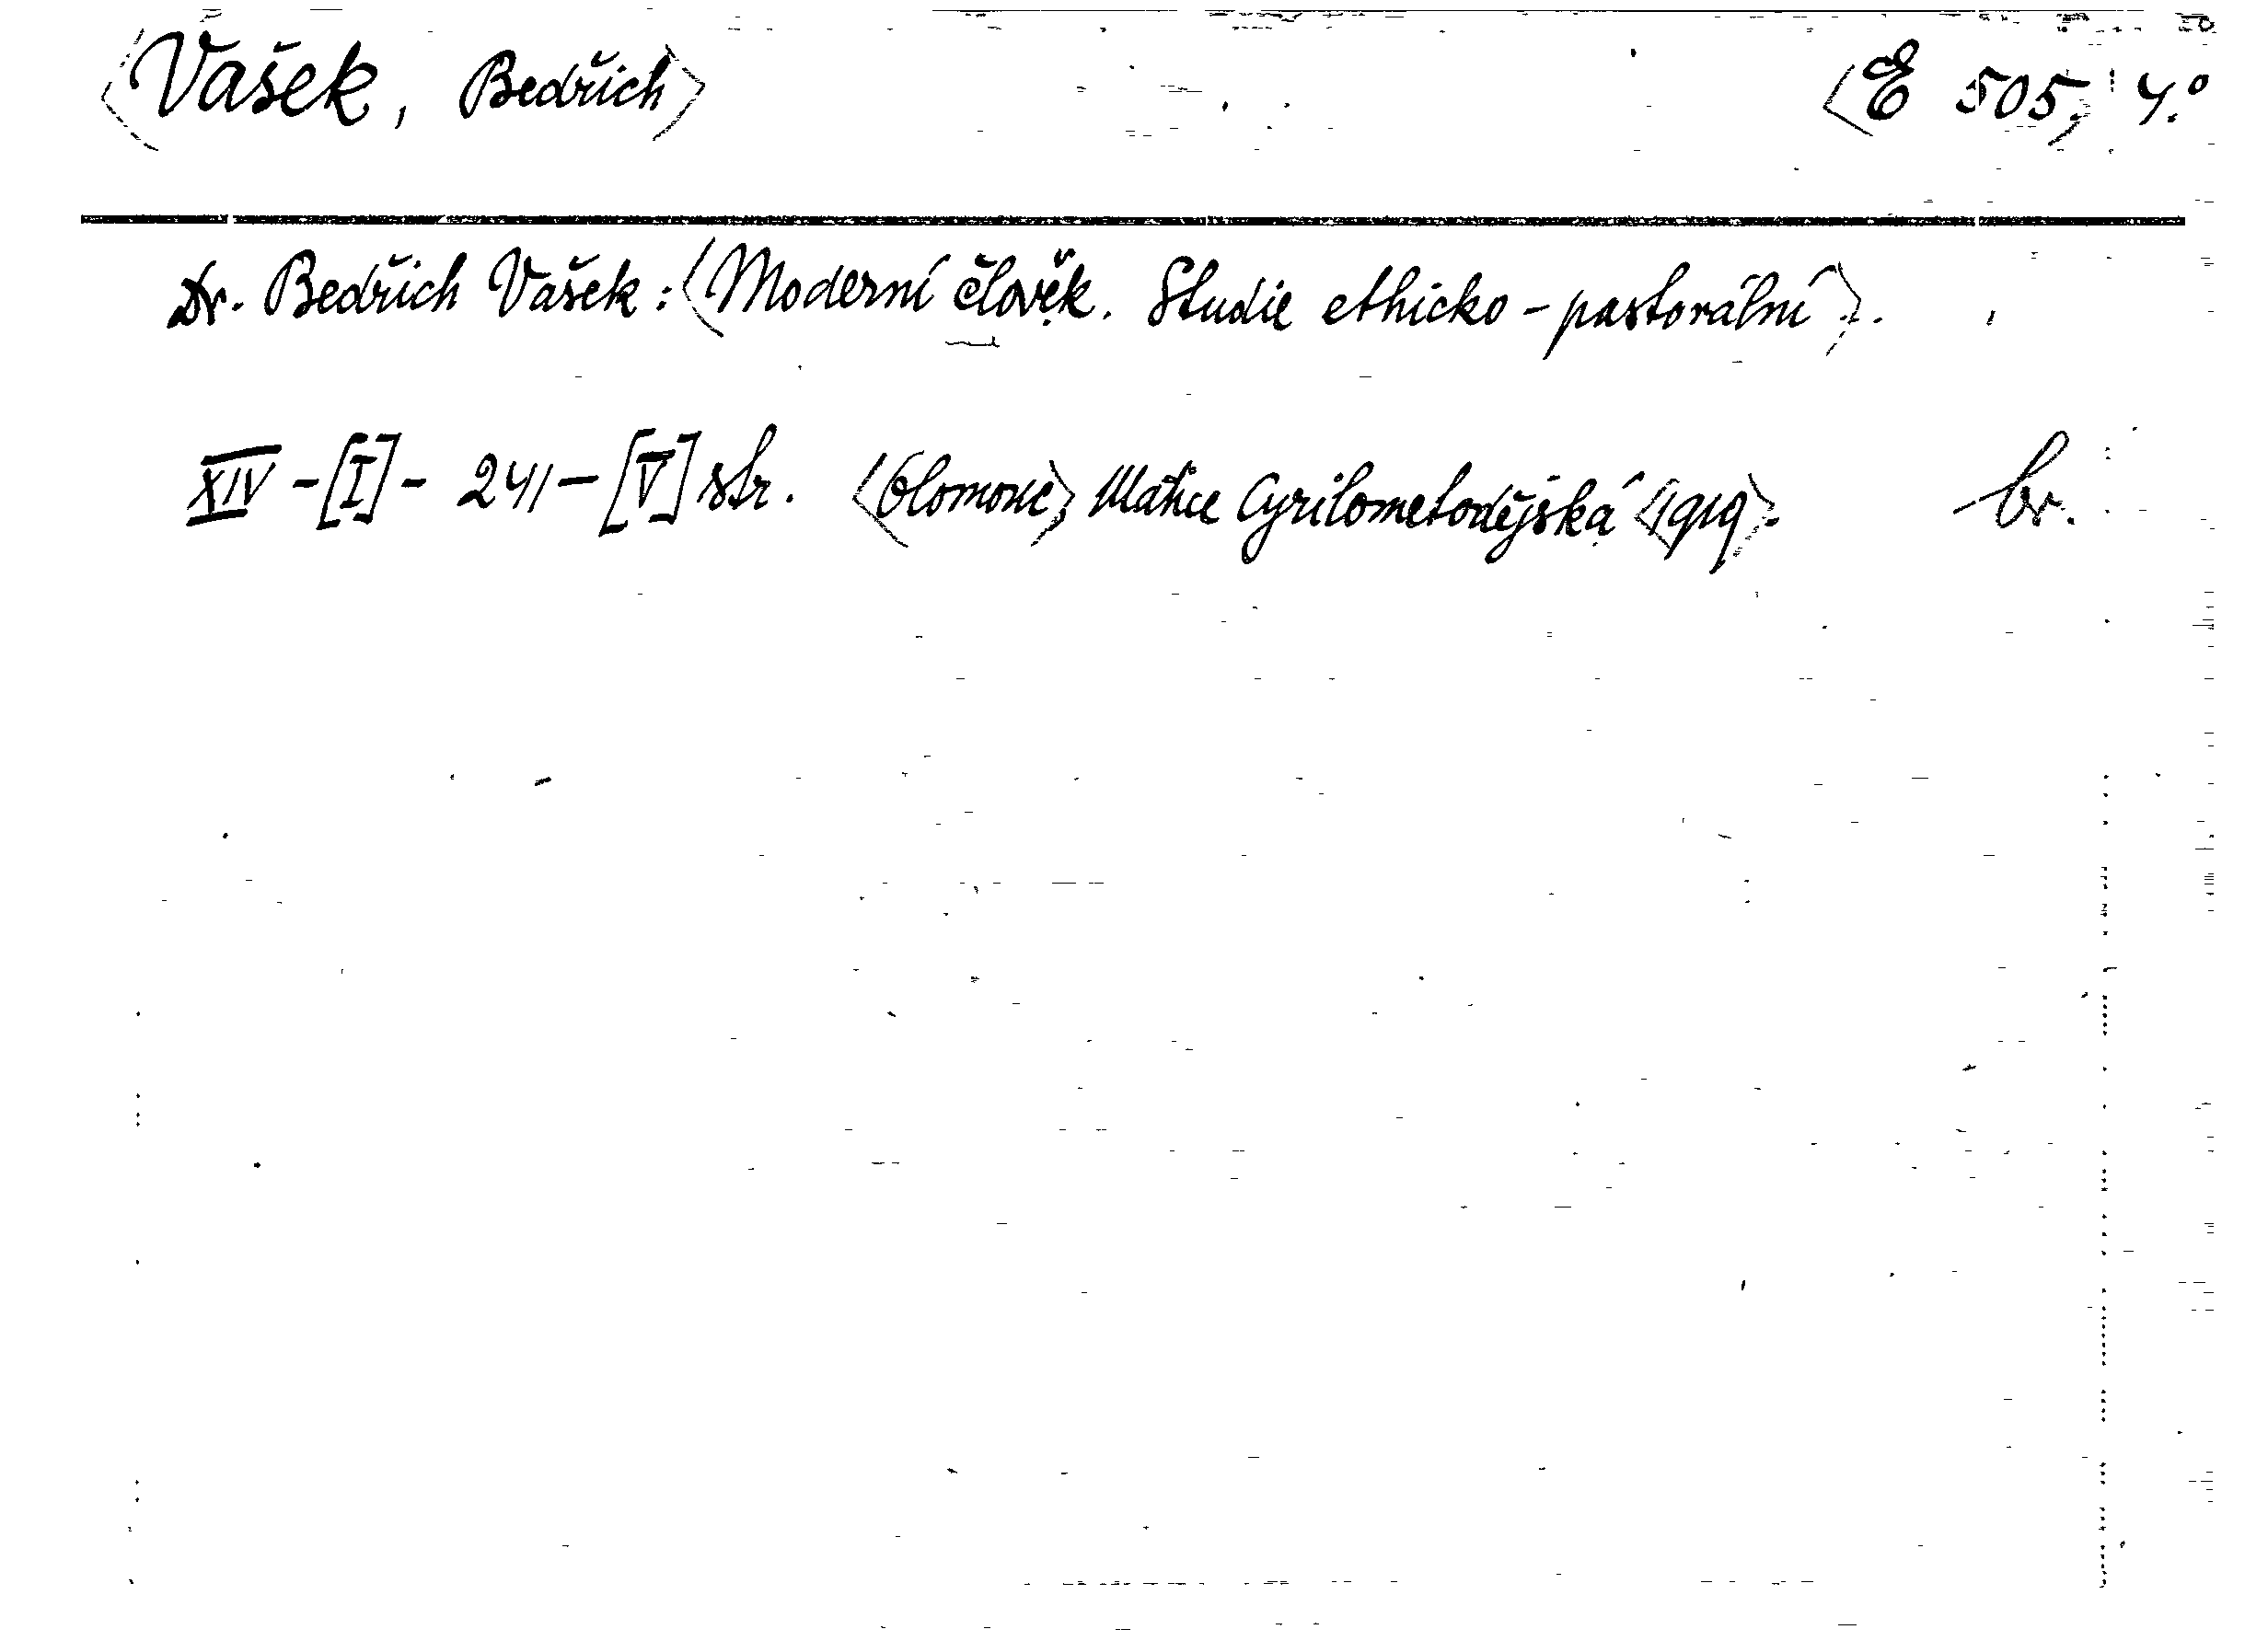 <Vašek, Bedřich> <E 505, 4.°
Dr. Bedřich Vašek: <Moderní člověk. Studie ethicko-pastorální>.
XIV-[I]-241-[V] str. <Olomouc>, Matice Cyrilometodějská <1919>. br.